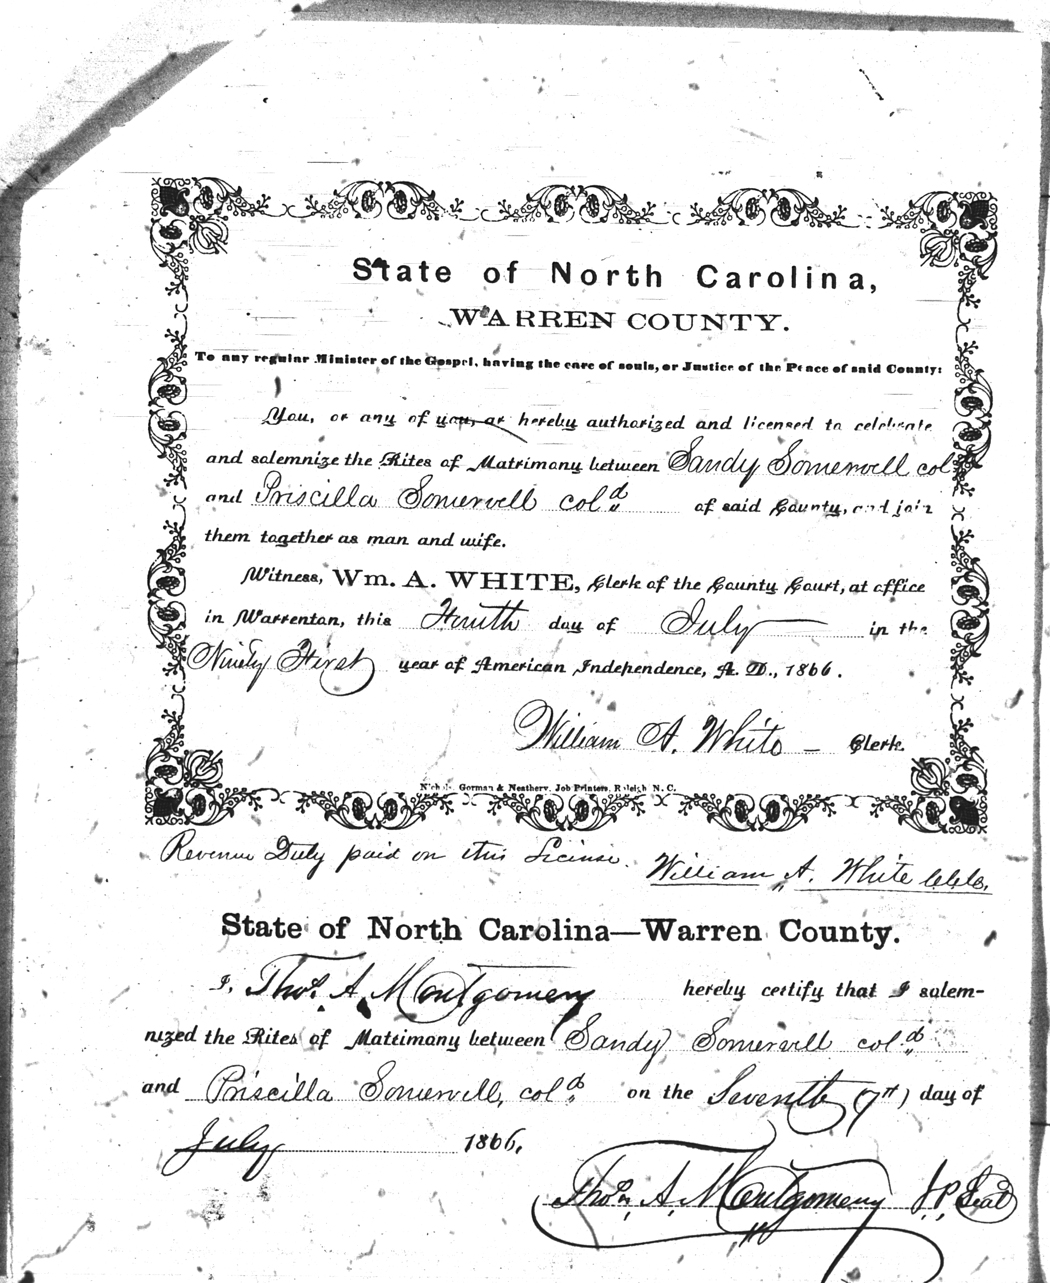 State of North Carolina,
WARREN COUNTY.
To any regular Minister of the Gospel, having the care of souls, or Justice of the Peace of said County:
You, or any of you, ar hereby authorized and licensed to celebrate
and solemnize the Rites of Matrimony between Sandy Somervell col
and Priscilla Somervell cold of said County, and join
them together as man and wife.
Witness, Wm. A. WHITE, Clerk of the County Court, at office
in Warrenton, this day of July in the
Ninety First year of American Independence, A. D., 1866.
William A. White Clerk.
Nichols, Gorman & Neathery, Job Printers, Raleigh N. C.
Revenue Duty paid on this License. William A. White
State of North Carolina—Warren County.
I, Thos. A. Montgomery hereby certify that I solem-
nized the Rites of Matrimony between Sandy Somervell cold
and Priscilla Somervell, cold on the Seventh (7th) day of
July 1866.
Thos. A. Montgomery J.P. Seal